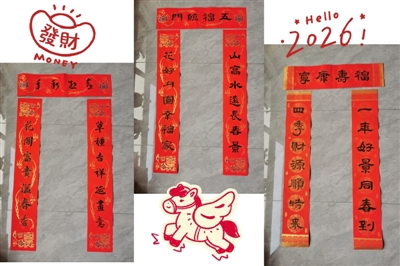 發財
MONEY
Hello
2026!
花開富貴
草種吉祥
五福臨門
山高水遠長春景
花好月圓幸福家
福壽康寧
一年好景同春到
四季財源順時來